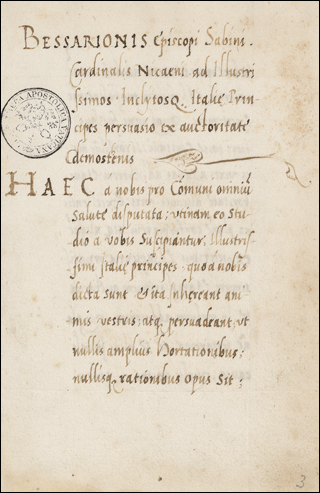 BESSARIONIS Episcopi Sabini.
Cardinalis Nicaeni ad Illustri
ssimos Inclytosq. Italie Prin-
cipes persuasio ex auctoritate
Demostenis
HAEC a nobis pro Comuni omniũ
salute disputata; utinam eo Stu-
dio a vobis Suscipiantur; Illustris-
simi Italie principes; quo a nobis
dicta sunt & ita Inhereant ani
mis vestris atq. persuadeant, ut
nullis amplius Hortationibus;
nullisq. rationibus opus Sit;
3